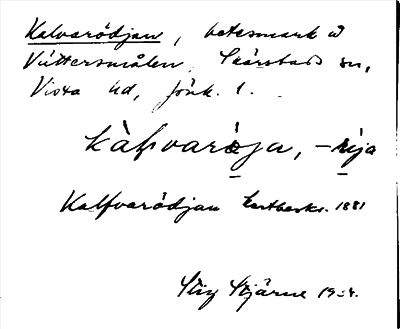 Kalvarödjan, betesmark å
Vättersmålen, Skärstads sn,
Vista hd, Jönk. l.
kàlvaröja, -röja
Kalfvarödjan kartbeskr. 1881
Stig Stjärne